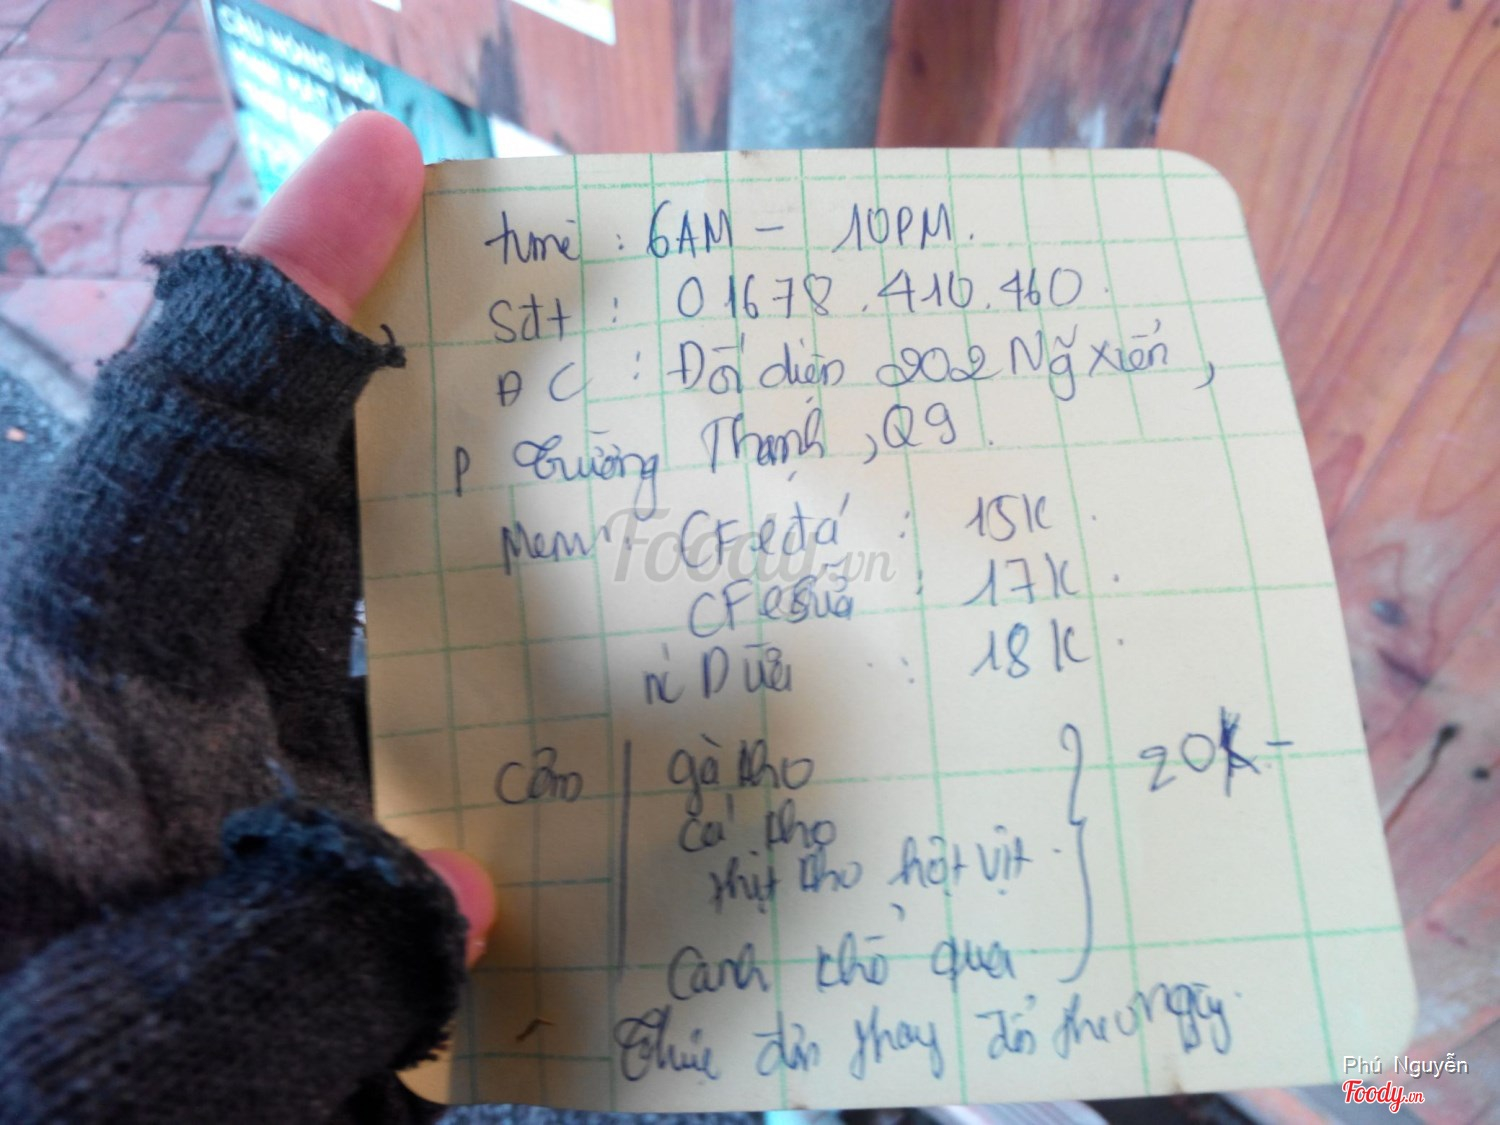 CẦU NÓNG MỚI
time : 6AM - 10PM.
Sđt : 01678.410.460.
ĐC : Đối diện 202 Ng~ Xiển,
P Trường Thạnh, Q9.
Menu : CFe đá : 15K.
CFe sữa : 17K.
nc Dừa : 18K.
Cơm gà kho
cá kho
thịt kho hột vịt. 20K-
Canh khổ qua
Thực đơn thay đổi theo ngày.
Foody.vn
Phú Nguyễn
Foody.vn